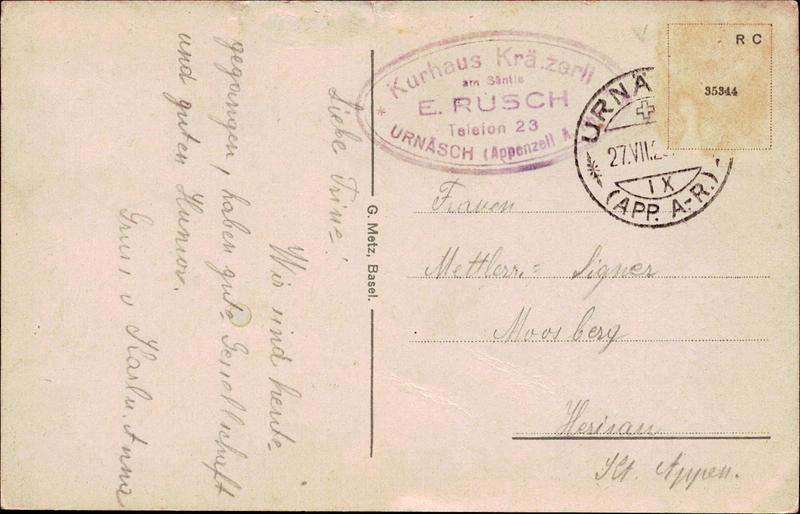 Liebe Trine!
Wir sind heute
gegangen, haben gute Gesellschaft
und guten Humor.
Gruss v Karl u. Anna
G. Metz, Basel.
Kurhaus Kräzerli
am Säntis
E. RUSCH
Telefon 23
* URNÄSCH (Appenzell A
URNÄ
27.VII.2
IX
(APP. A.-R.)
R C
35344
Frauen
Mettler = Signer
Moosberg
Herisau
Kt. Appen.